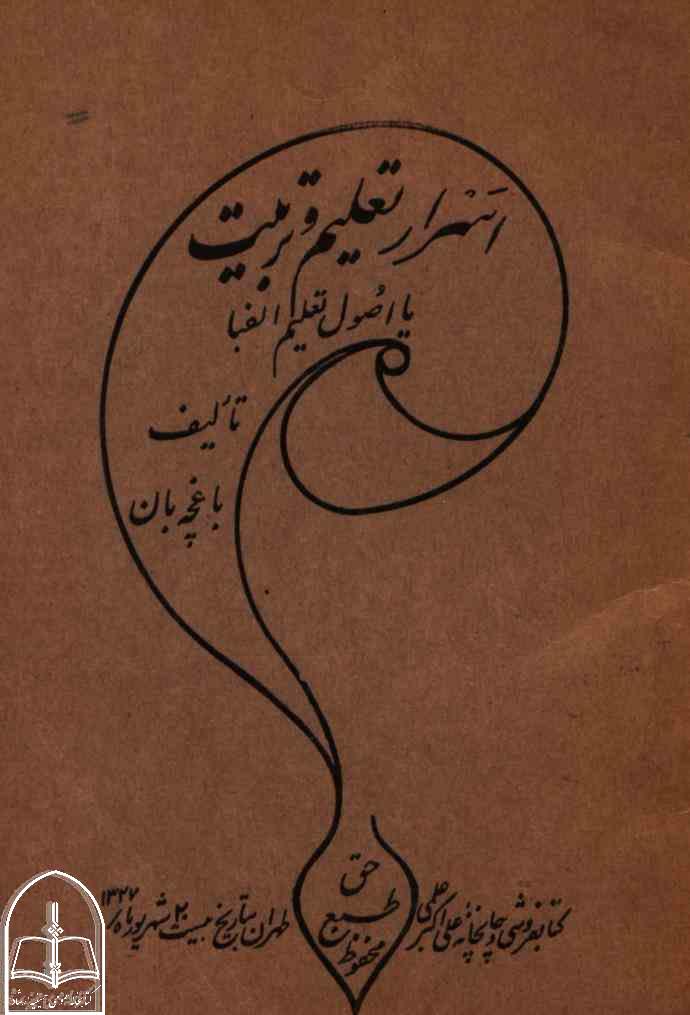 اسرار تعلیم و تربیت
یا اصول تعلیم الفبا
تألیف
باغچه بان
حق
طبع
محفوظ
کتابفروشی و چاپخانهٔ علی اکبر علمی
طهران بتاریخ بیست ۲۰ شهریور ماه ۱۳۲۷